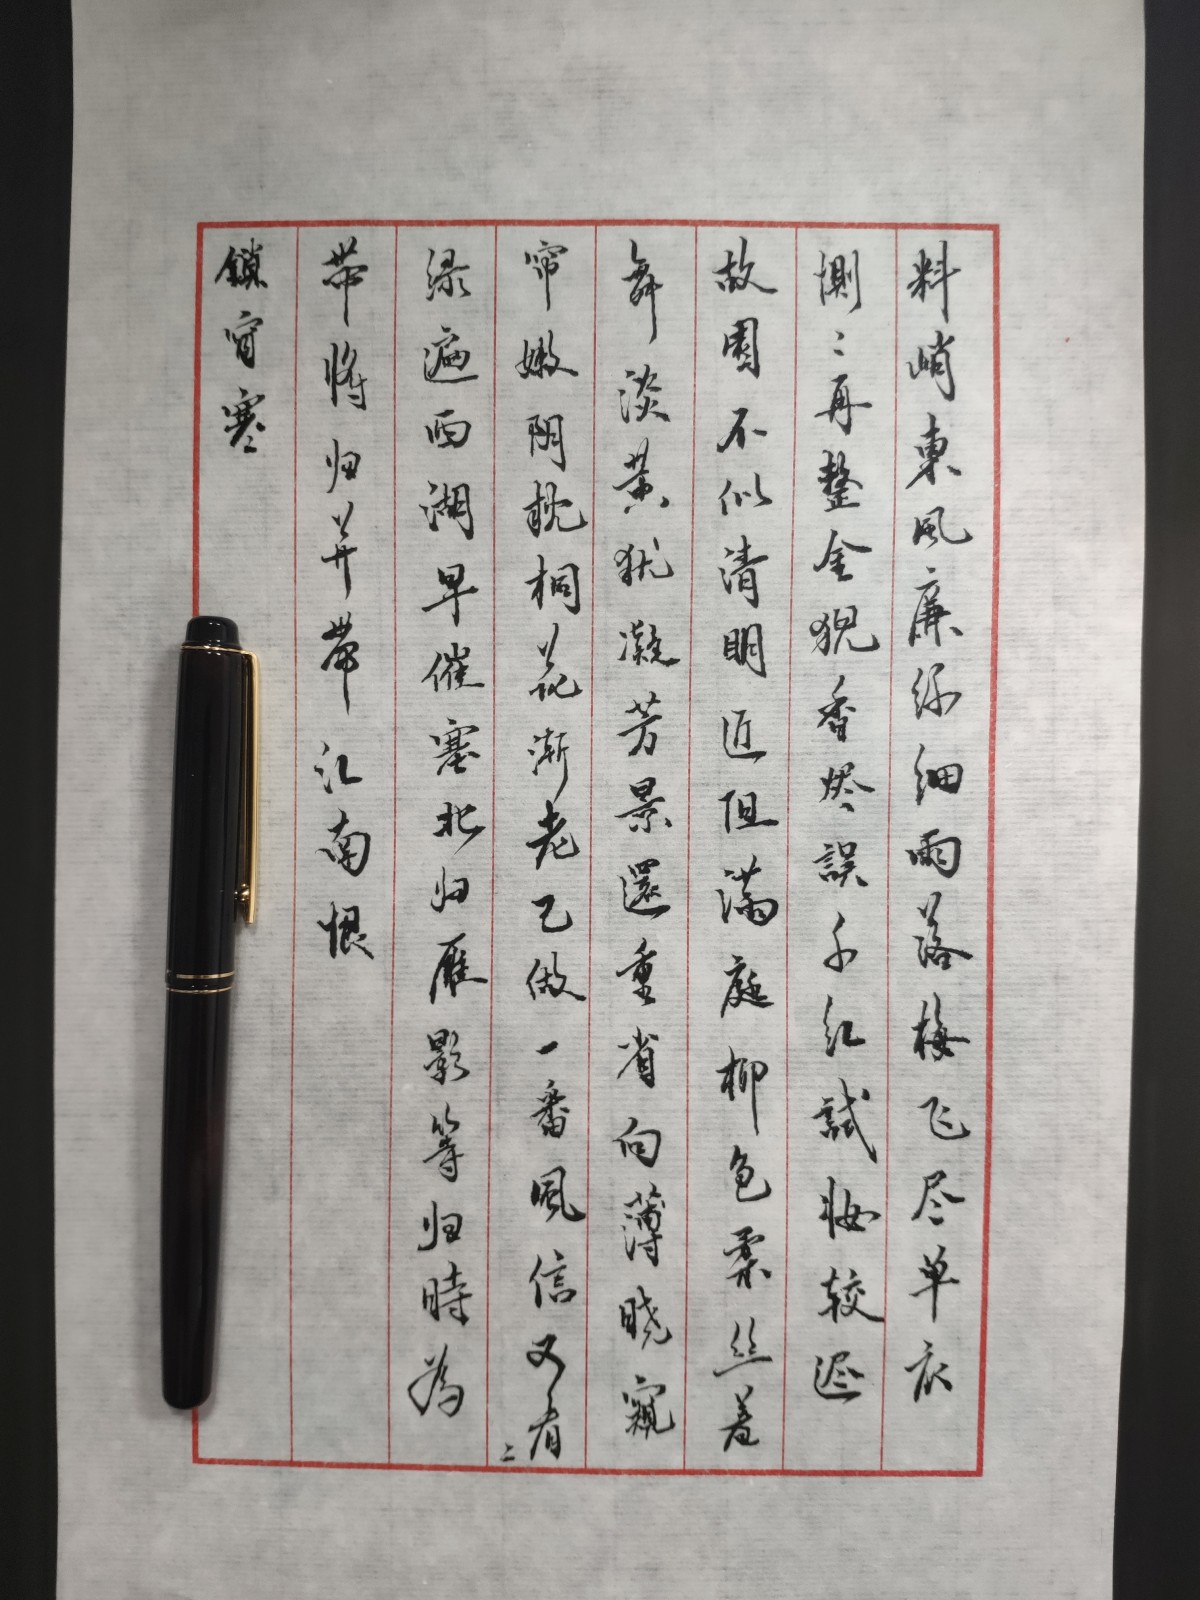 料峭東風廉纤细雨落梅飞尽单衣
恻〻再整金猊香烬誤千红試妝较迟
故園不似清明近但满庭柳色柔丝羞
舞淡黄犹凝芳景還重省向薄晓窥
帘嫩阴枕桐花渐老已做一番風信又看〻
绿遍西湖早催塞北归雁影等归時為
带将归并带江南恨
鎖窗寒